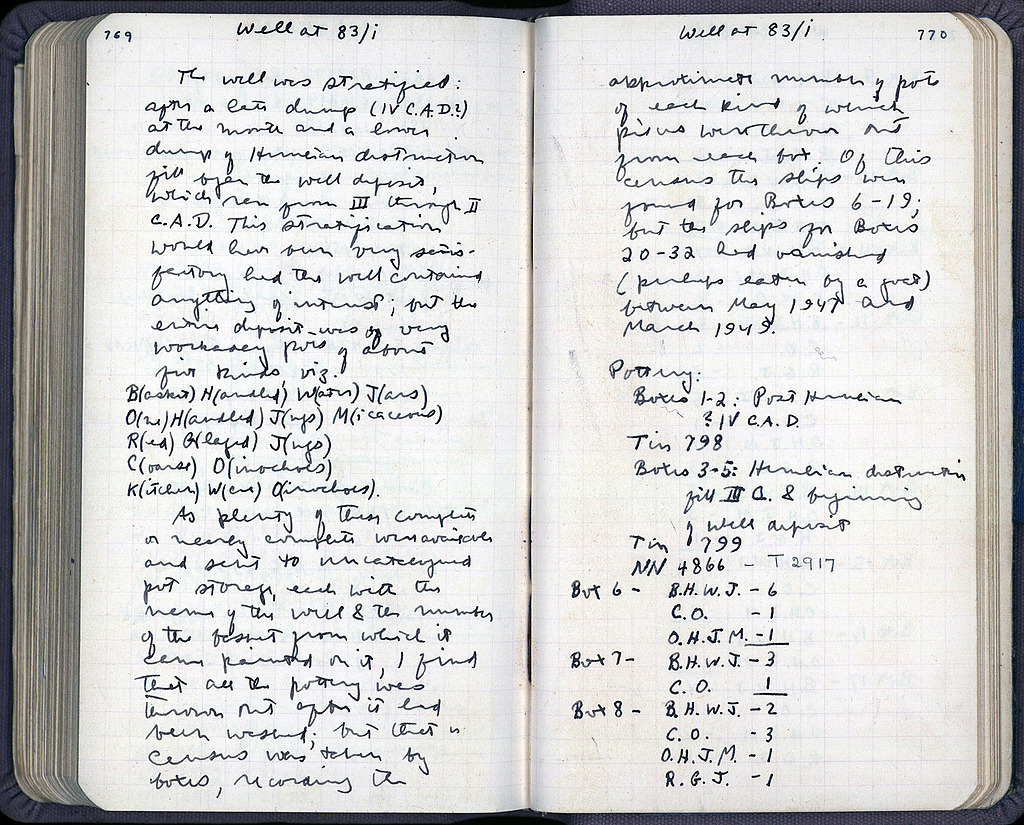 769
Well at 83/i
The well was stratified:
after a late dump (IV C.A.D.?)
at the mouth and a lower
dump of Herulian destruction
fill began the well deposit,
which ran from III through II
C.A.D. This stratification
would have been very satis-
factory had the well contained
anything of interest; but the
entire deposit was of very
workaday pots of about
five kinds, viz.
B(asket) H(andled) W(ater) J(ars)
O(ne) H(andled) J(ugs) M(icaceous)
R(ed) G(lazed) J(ugs)
C(oarse) O(inochoes)
K(itchen) W(are) O(inochoes).
As plenty of these complete
or nearly complete were available
and sent to uncatalogued
pot storage, each with the
name of the well & the number
of the basket from which it
came painted on it, I find
that all the pottery was
thrown out after it had
been washed; but that a
census was taken by
boxes, recording the
770
Well at 83/i
approximate number of pots
of each kind of which
pieces were thrown out
from each box. Of this
census the slips were
found for Boxes 6-19;
but the slips for Boxes
20-32 had vanished
(perhaps eaten by a goat)
between May 1947 and
March 1949.
Pottery:
Boxes 1-2: Post Herulian
? IV C.A.D.
Tin 798
Boxes 3-5: Herulian destruction
fill III C. & beginning
of well deposit
Tin 799
NN 4866 - T 2917
Box 6 - B.H.W.J. - 6
C.O. - 1
O.H.J.M. - 1
Box 7 - B.H.W.J. - 3
C.O. 1
Box 8 - B.H.W.J. - 2
C.O. - 3
O.H.J.M. - 1
R.G.J. - 1